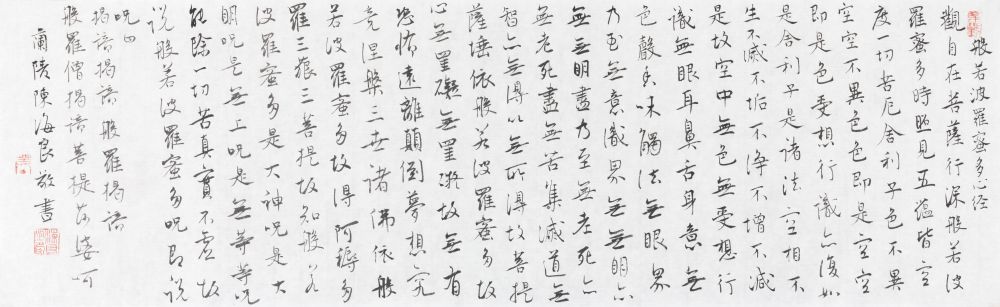 般若波羅蜜多心经
觀自在菩薩行深般若波
羅蜜多時照見五蘊皆空
度一切苦厄舍利子色不異
空空不異色色即是空空
即是色受想行識亦復如
是舍利子是諸法空相不
生不滅不垢不淨不增不減
是故空中無色無受想行
識無眼耳鼻舌身意無
色聲香味觸法無眼界
乃至無意識界無無明亦
無無明盡乃至無老死亦
無老死盡無苦集滅道無
智亦無得以無所得故菩提
薩埵依般若波羅蜜多故
心無罣礙無罣礙故無有
恐怖遠離顛倒夢想究
竟涅槃三世諸佛依般
若波羅蜜多故得阿耨多
羅三藐三菩提故知般若
波羅蜜多是大神咒是大
明咒是無上咒是無等等咒
能除一切苦真實不虛故
說般若波羅蜜多咒即說
咒曰
揭諦揭諦般羅揭諦
般羅僧揭諦菩提莎婆呵
蘭陵陳海良敬書